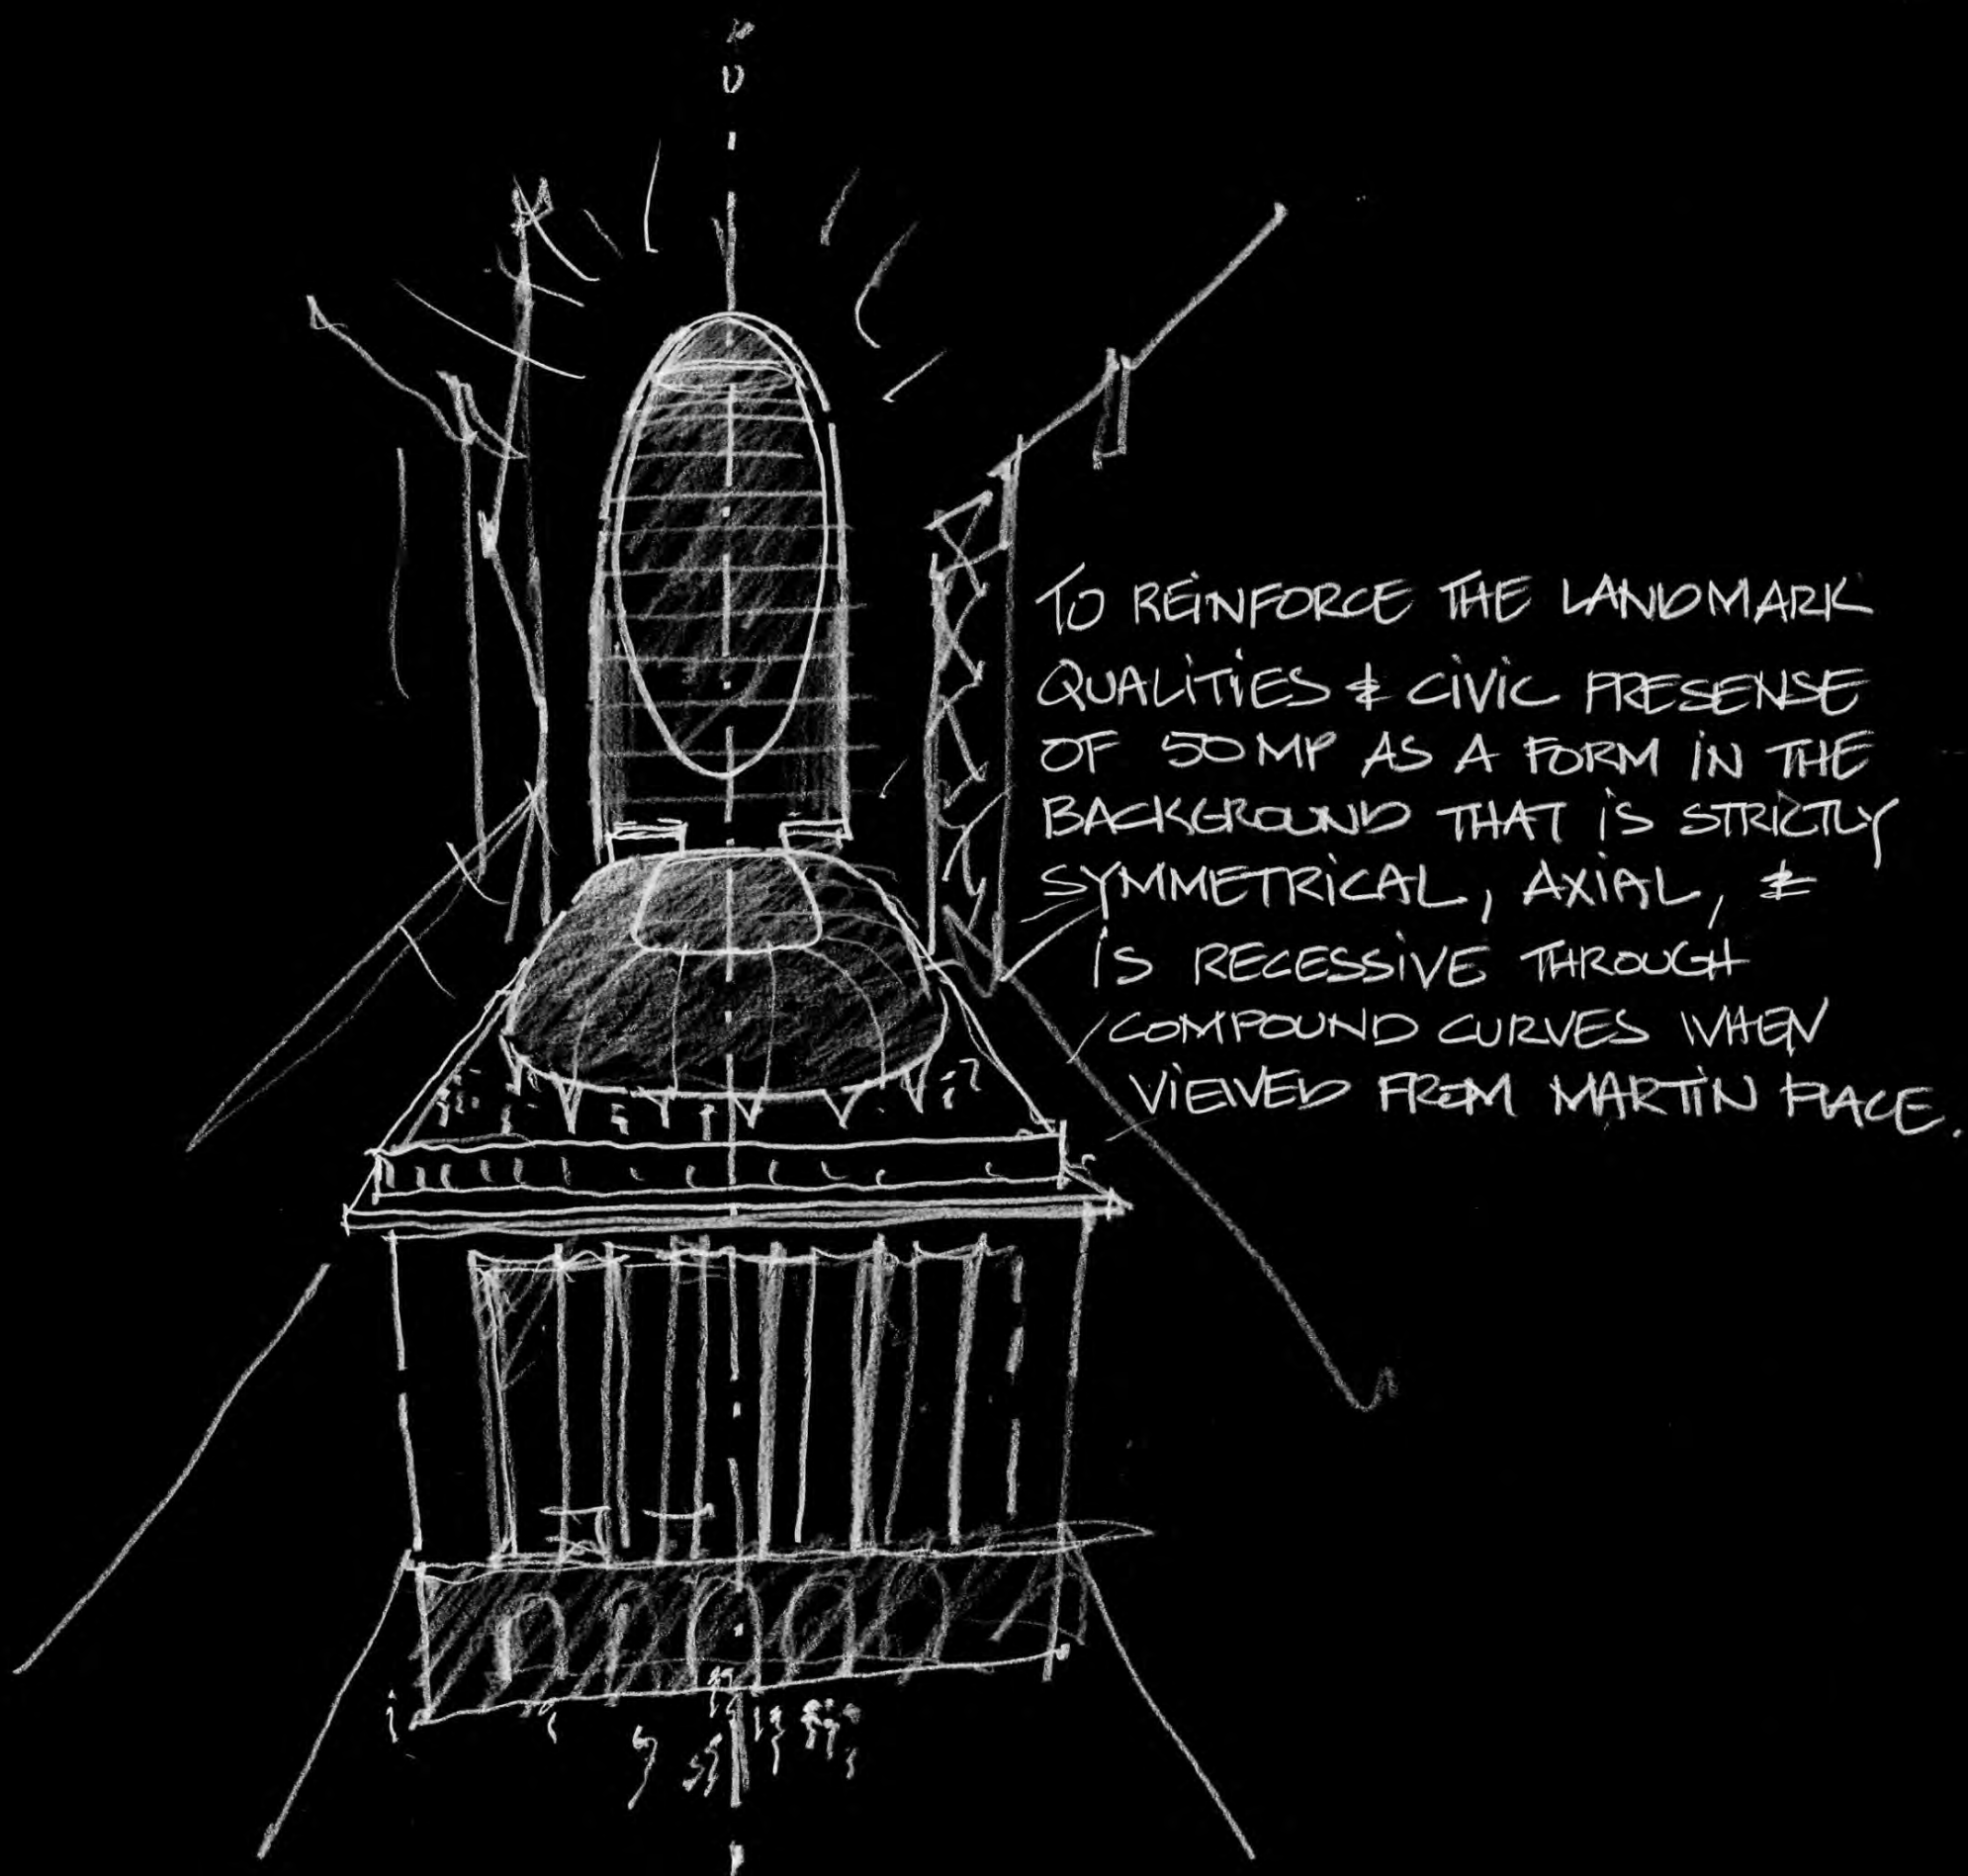 TO REINFORCE THE LANDMARK
QUALITIES & CIVIC PRESENSE
OF 50 MP AS A FORM IN THE
BACKGROUND THAT IS STRICTLY
SYMMETRICAL, AXIAL, &
IS RECESSIVE THROUGH
COMPOUND CURVES WHEN
VIEWED FROM MARTIN PLACE.